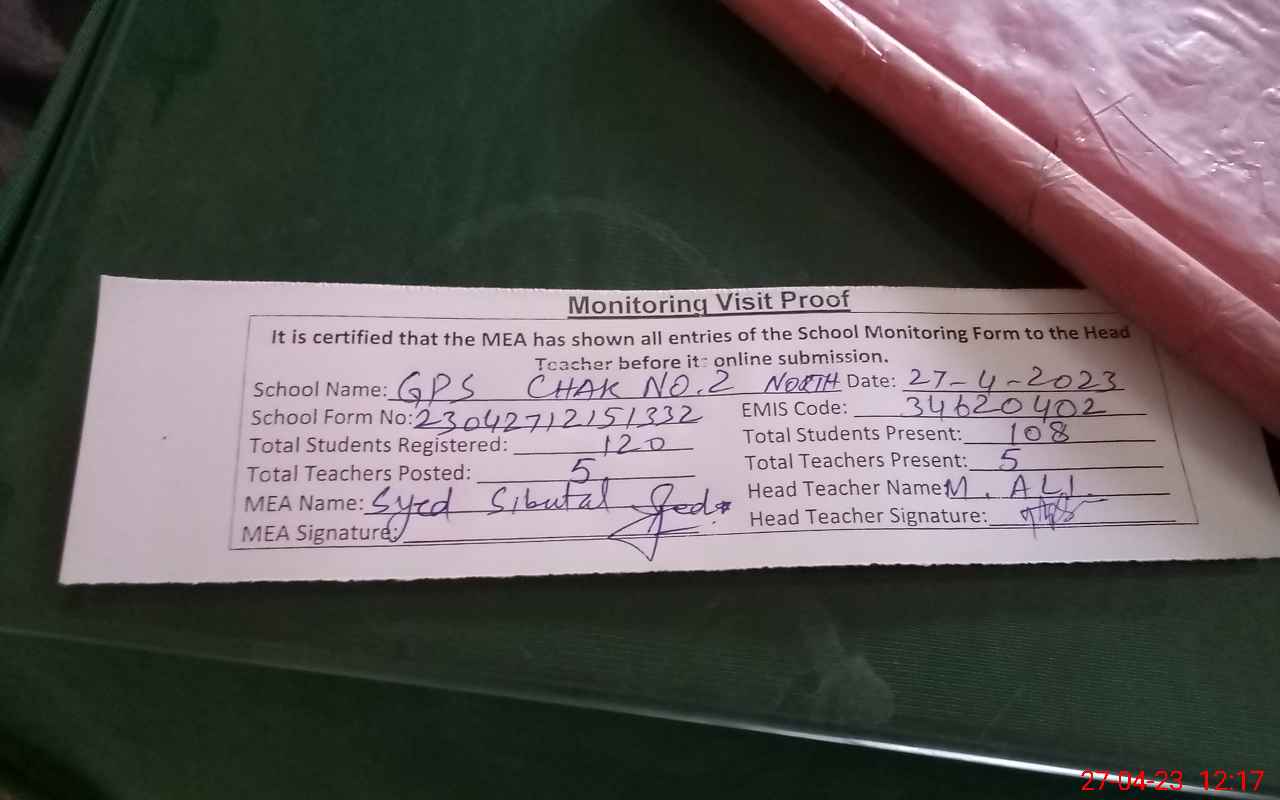 Monitoring Visit Proof
It is certified that the MEA has shown all entries of the School Monitoring Form to the Head
Teacher before its online submission.
School Name: GPS CHAK NO.2 NORTH Date: 27-4-2023
School Form No: 23042712151332 EMIS Code: 34620402
Total Students Registered: 120 Total Students Present: 108
Total Teachers Posted: 5 Total Teachers Present: 5
MEA Name: Syed Sibutal Head Teacher Name M. ALI.
MEA Signature: Head Teacher Signature:
27-04-23 12:17